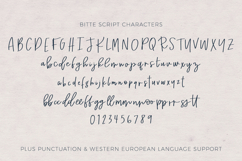 BITTE SCRIPT CHARACTERS
ABCDEFGHIJKLMNOPQRSTUVWXYZ
abcdefghijklmnopqrstuvwxyz
abcdefghijklmnopqrstuvwxyz
0123456789
PLUS PUNCTUATION & WESTERN EUROPEAN LANGUAGE SUPPORT